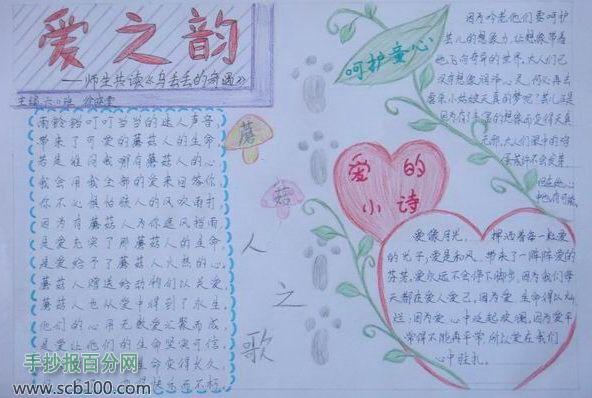 爱之韵
——师生共读《乌丢丢的奇遇》
主编 六(1)班
雨铃铛叮叮当当的迷人声音
带来了可爱的蘑菇人的生命
若是谁问我哪有蘑菇人的心
我会用我全部的爱来回答你
你不必担怕狼人的风吹雨打
因为有蘑菇人为你遮风挡雨
是爱充实了那蘑菇人的生命
是爱给予了蘑菇人火热的心
蘑菇人赠送给动物们以关爱
蘑菇人也从爱中得到了永生
他们的心用无数爱心聚而成
是爱让他们的生命坚实可信
生命变得长久
蘑
菇
人
之
歌
呵护童心
因为吟老他们要呵护
芸儿的想象力,让想象带着
她飞向奇异的世界,大人们已
没有想象润泽心灵,何必再去
惊呆小姑娘天真的梦呢?芸儿正是
因为有了丰富的想象而变得天真
无邪,大人们眼中的
爱的
小诗
爱像月光,挥洒着每一粒爱
的光子,爱是和风,带来了一阵阵爱的
芬芳,爱永远不会停下脚步,因为我们每
天都在爱人爱己,因为爱,生命得以灿
烂,因为爱,心中泛起波澜,因为爱平
常得不能再平常,所以爱在我们
心中驻扎。
手抄报百分网
www.scb100.com